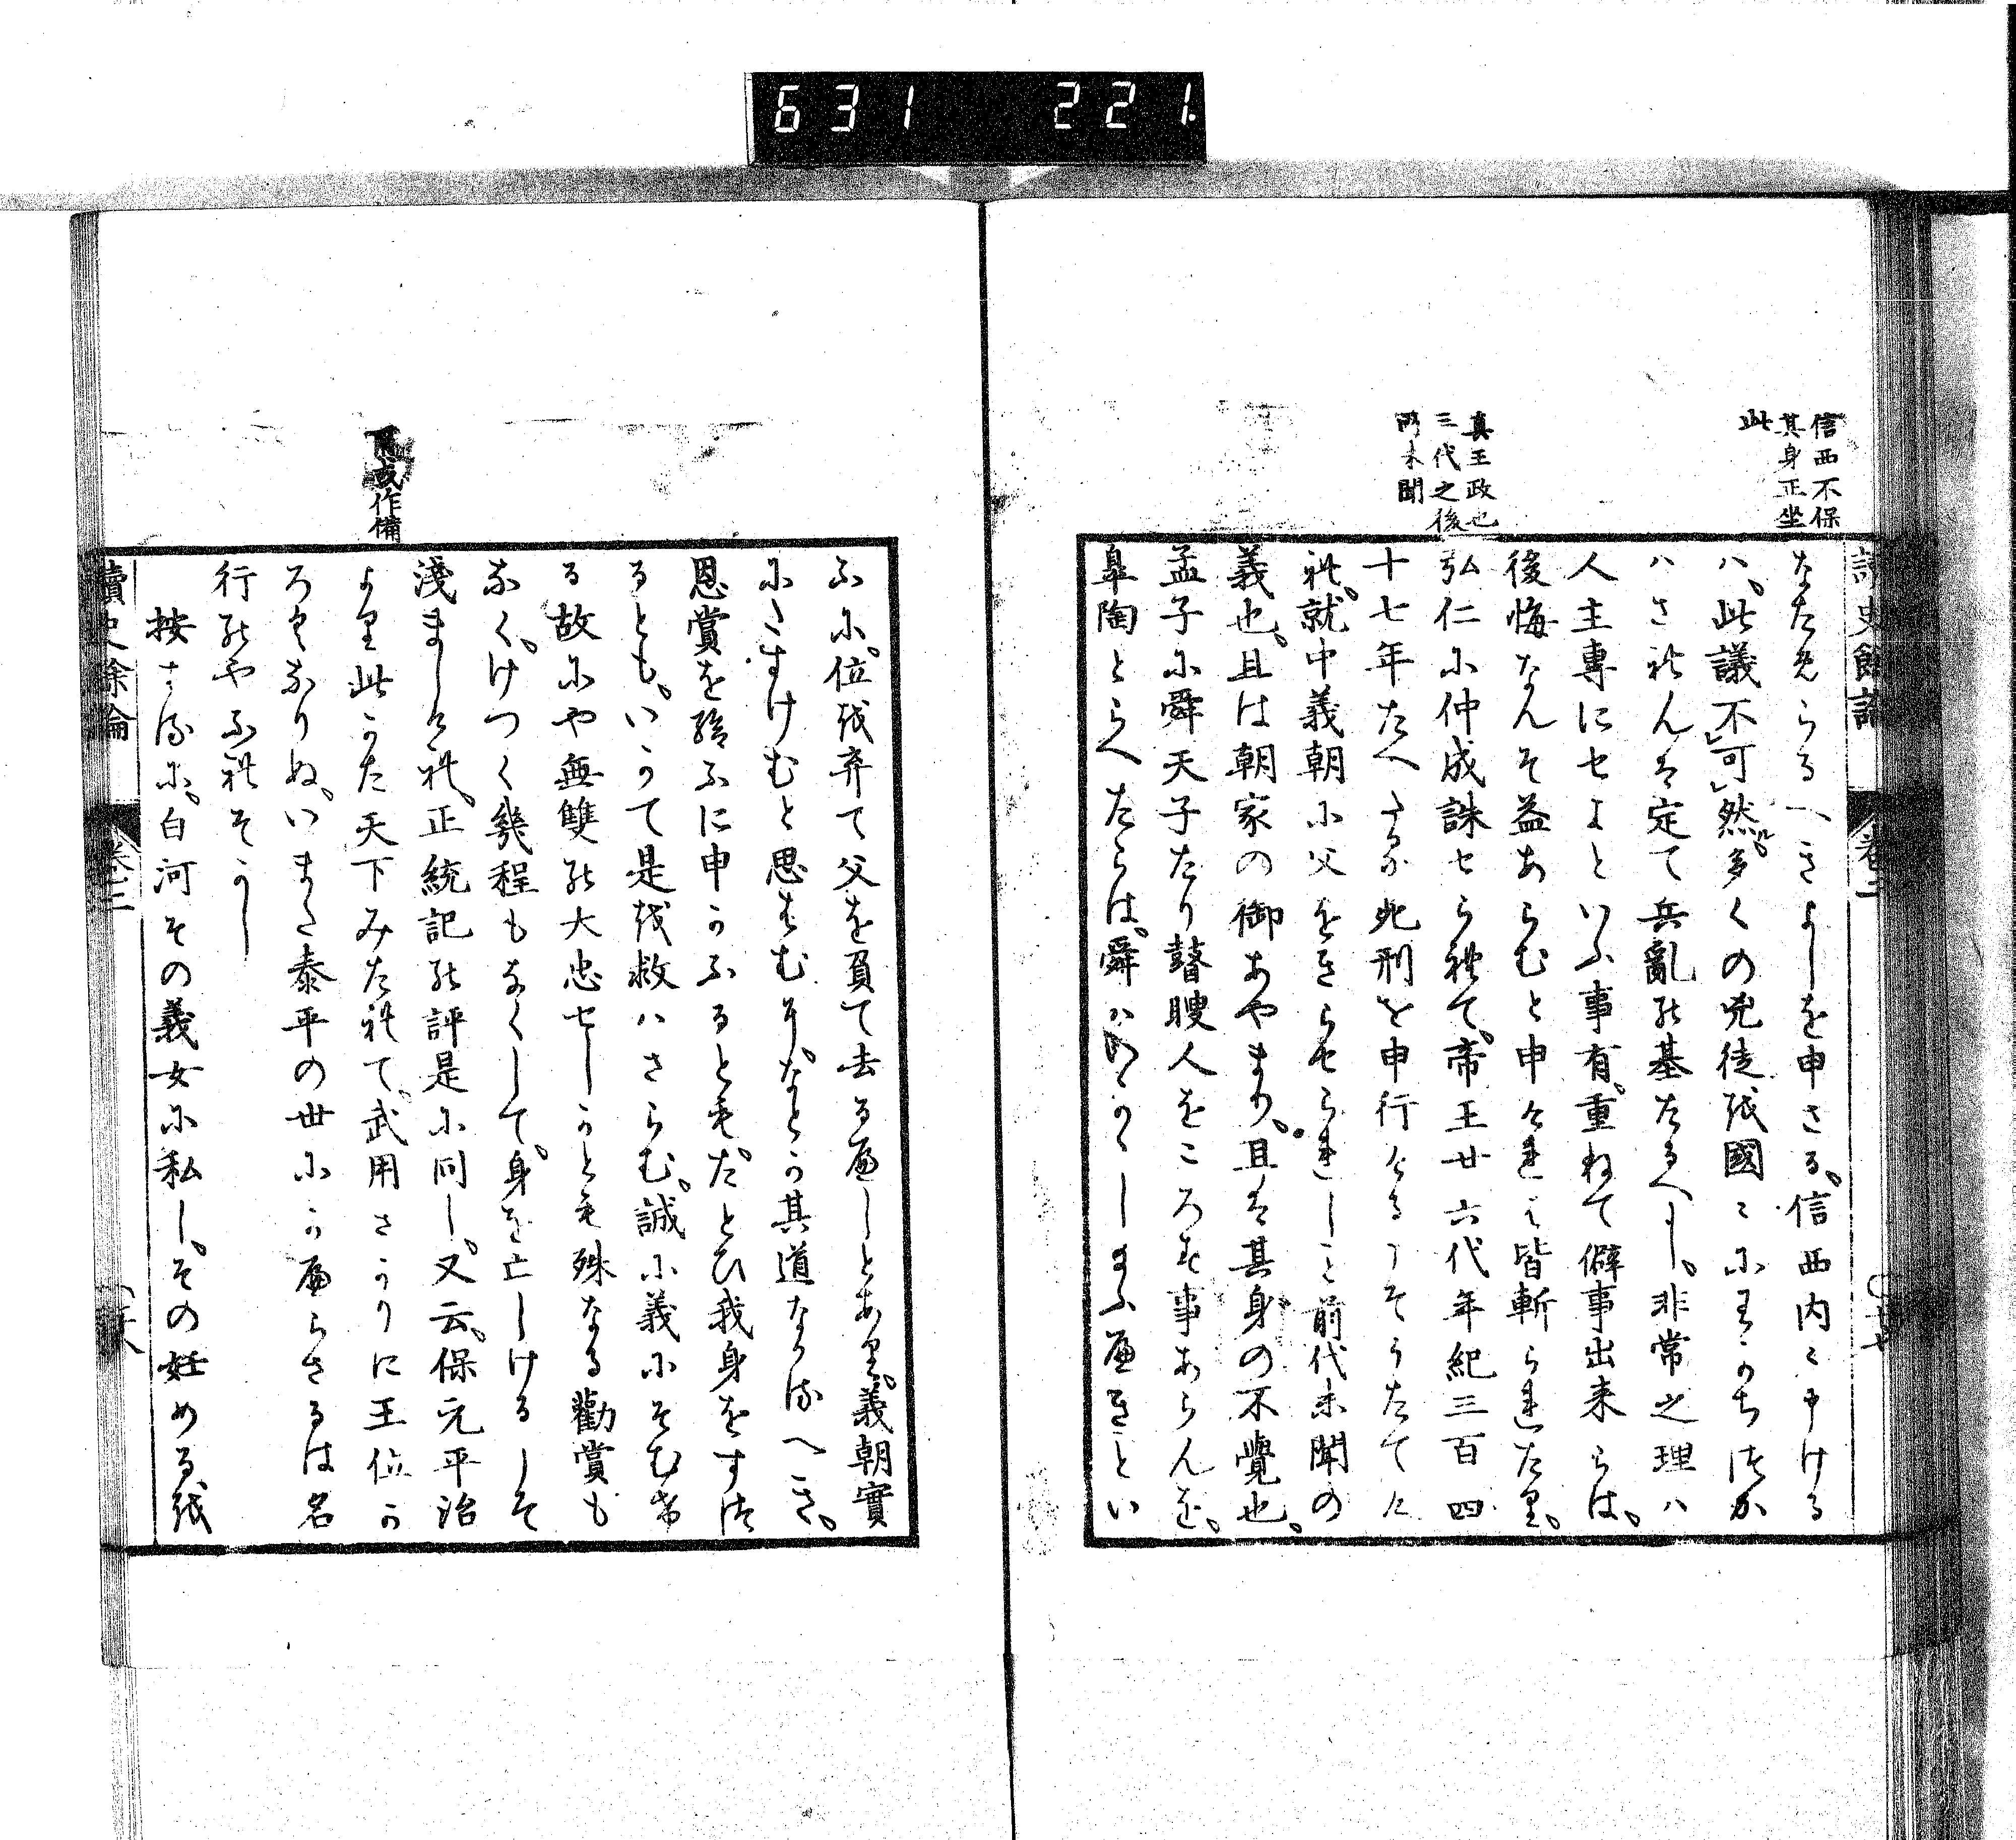 631 221.
信西不保
其身正坐
此
真王政也
三代之後
所未聞
讀史餘論
卷二
なためらるへきよしを申さる。信西内々申ける
ハ、此議不可然。多くの兇徒を國々にわかちつか
ハされんは定て兵亂の基たるへし。非常之理ハ
人主專にセよといふ事有。重ねて僻事出来らは。
後悔なんそ益あらむと申けれは皆斬られたり。
弘仁に仲成誅セられて。帝王廿六代年紀三百四
十七年たへたる死刑を申行けるこそうたてけ
れ。就中義朝に父をきらセられしこと前代未聞の
義也、且は朝家の御あやまり。且は其身の不覺也。
孟子に舜天子たり瞽瞍人をころす事あらんを。
皐陶とらへたらは、舜ハいかゝしまふへきとい
ふに。位を弃て父を負て去るへしとあり。義朝實
にたすけむと思はむに。なとか其道なかるへき。
恩賞を給ふに申かふるとも。たとひ我身をすつ
るとも。いかて是を救ハさらむ。誠に義にそむけ
る故にや無雙の大忠セしかとも殊なる勸賞も
なく。けつく幾程もなくして。身を亡しけるこそ
淺ましけれ。正統記の評是に同し。又云。保元平治
より此かた天下みたれて。武用さかりに王位か
ろくなりぬ。いまた泰平の世にかへらさるは名
行のやふれそめし
按するに。白河その義女に私し。その妊めるを
甫或作備
讀史餘論
卷二